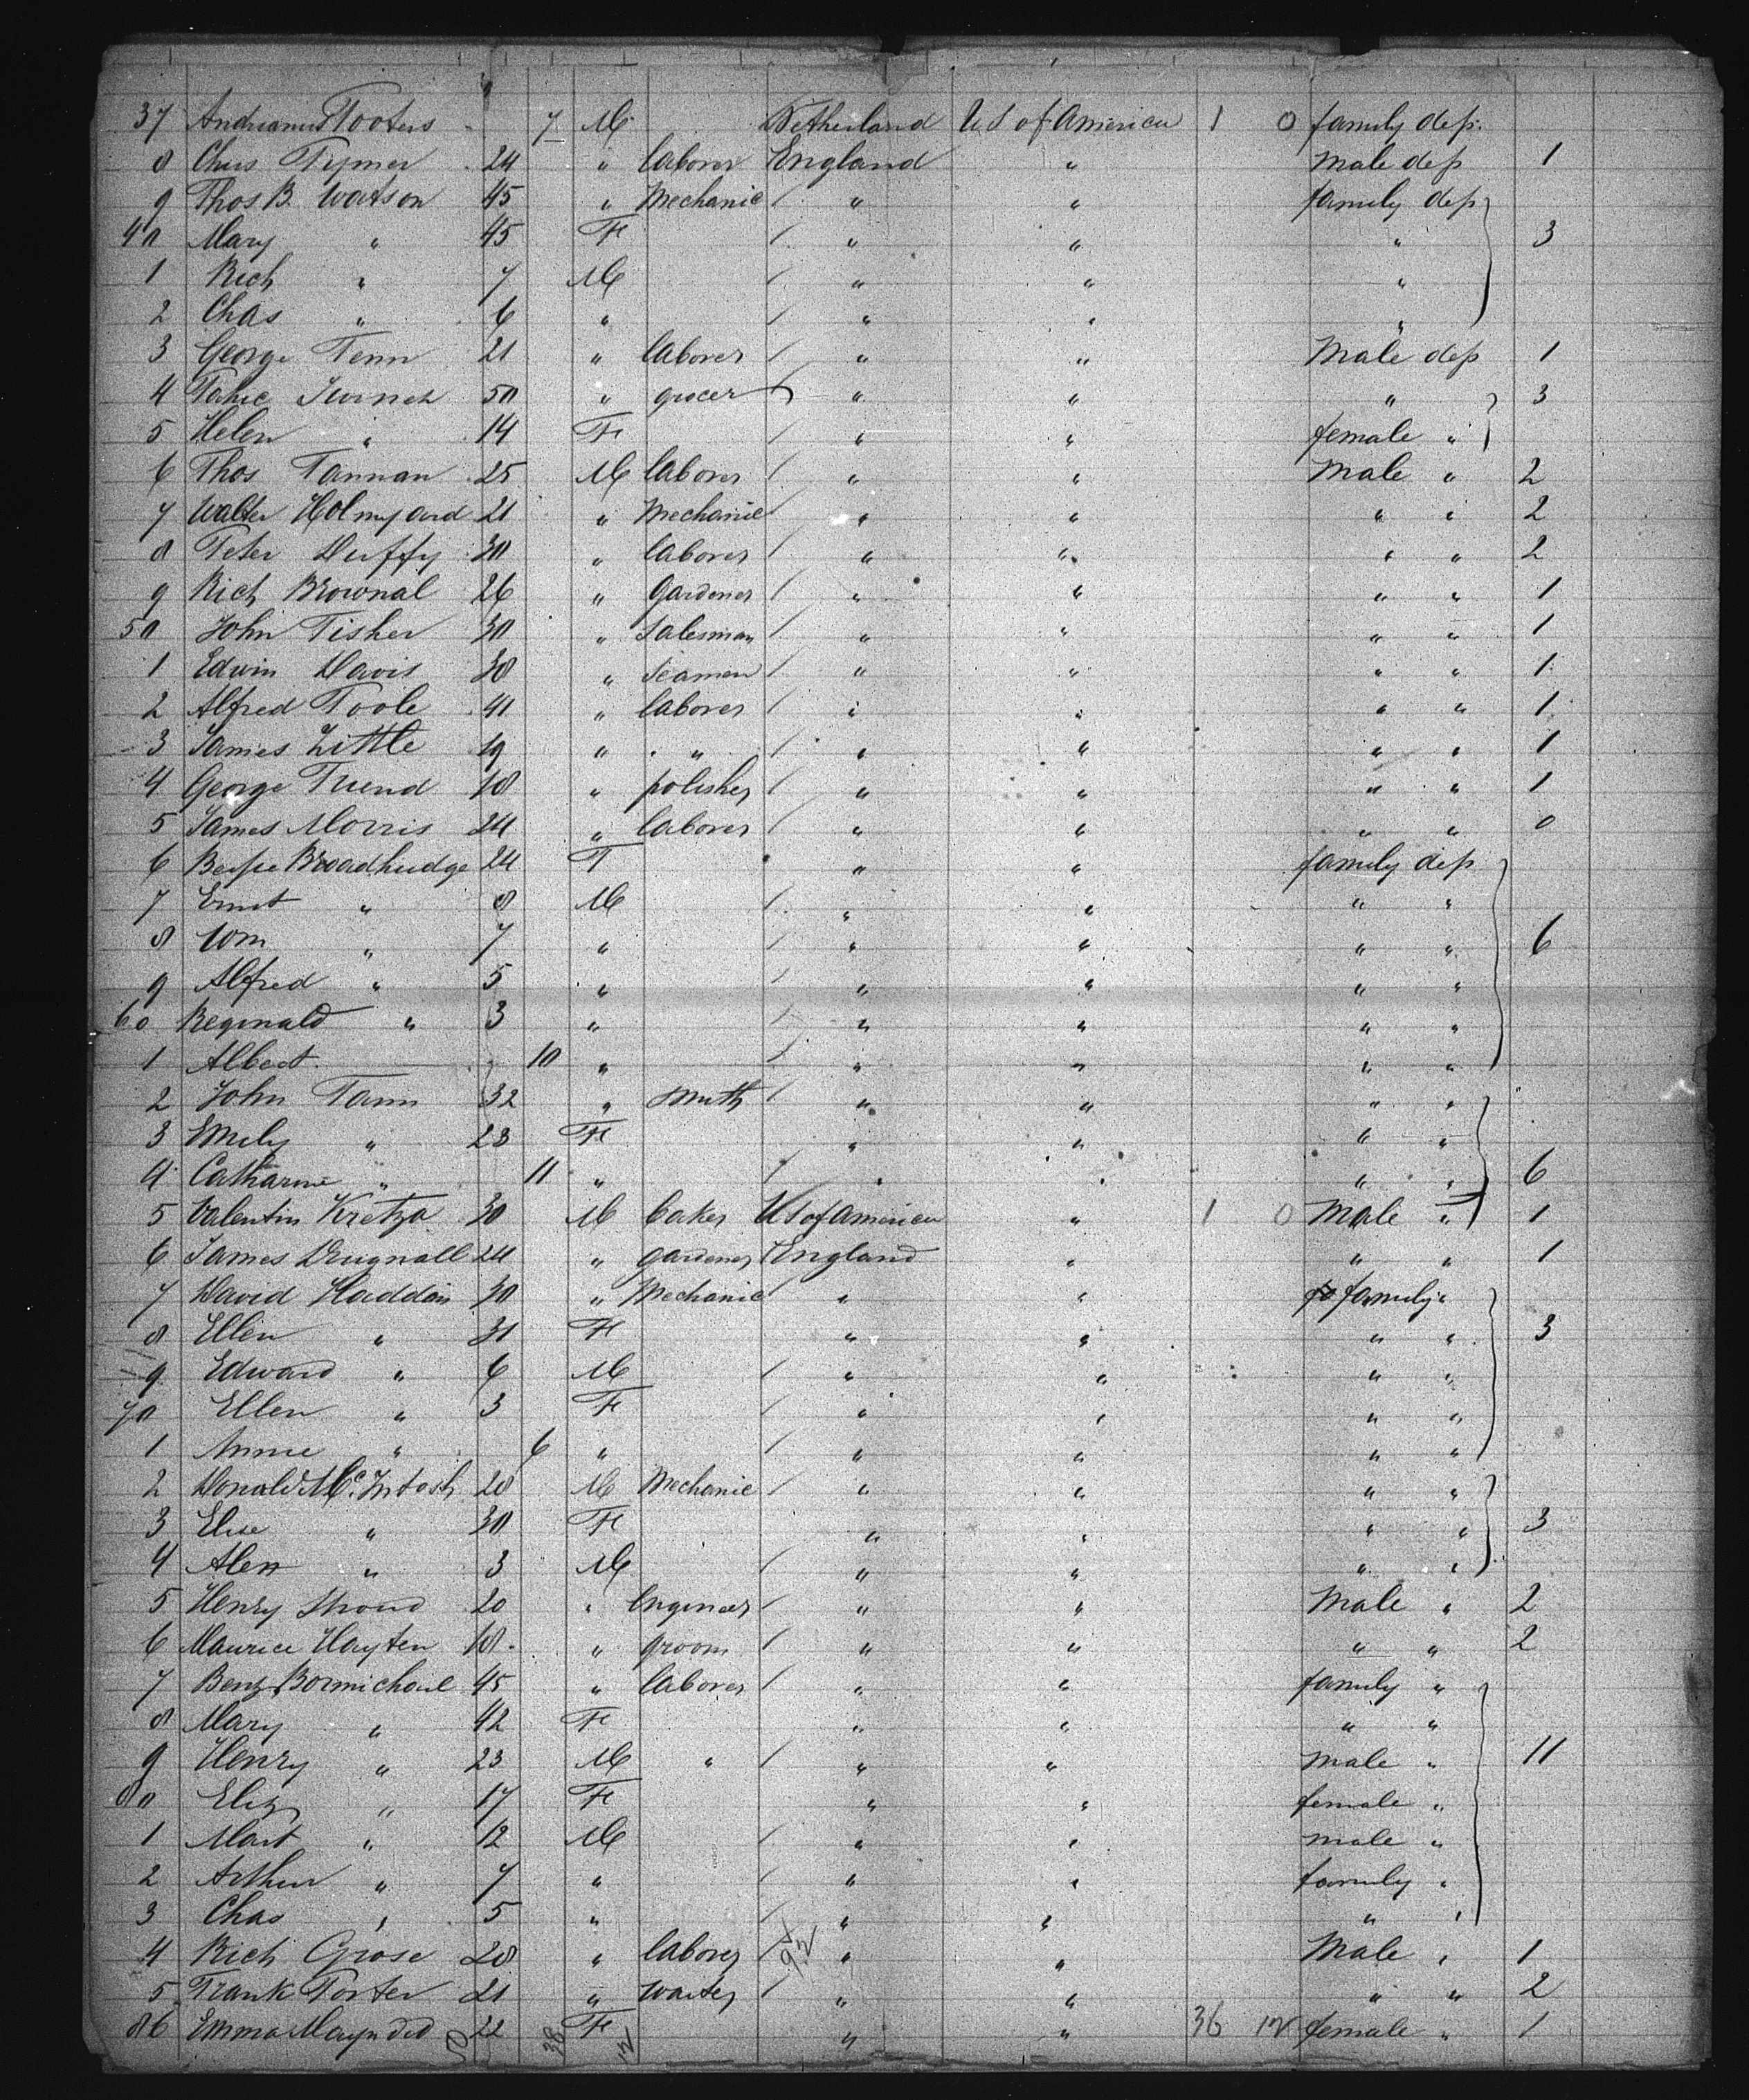 37 7 M Netherland U S of America 1 0 family dep.
8 Chas Tymer 24 " laborer England " Male dep 1
9 Thos B. Watson 45 " Mechanic " " family dep
40 Mary " 45 F " " " 3
1 Rich " 7 M " " "
2 Chas " 6 " " " "
3 George Tenn 21 " laborer " " Male dep 1
4 50 " grocer " " " 3
5 Helen " 14 F " " female "
6 Thos Tannan 25 M laborer " " Male " 2
7 Walter Holmyard 21 " Mechanic " " " " 2
8 Peter Duffy 30 " laborer " " " " 2
9 Rich Brownal 26 " Gardener " " " " 1
50 John Fisher 30 " Salesman " " " " 1
1 Edwin Davis 38 " Seaman " " " " 1
2 Alfred Toole 41 " laborer " " " " 1
3 James Little 19 " " " " " " 1
4 George 18 " polisher " " " " 1
5 James Morris 24 " laborer " " " " 0
6 24 F " " family dep
7 Ernst " 8 M " " " "
8 Wm " 7 " " " " " 6
9 Alfred " 5 " " " " "
60 Reginald " 3 " " " " "
1 Albert 10 " " " " "
2 John Tann 32 " Smith " " " "
3 Emily " 28 F " " " "
4 Catharine " 11 " " " " " 6
5 Valentin 30 M baker U S of America " 1 0 Male " 1
6 James 24 " gardener England " " " 1
7 David Haddon 30 " Mechanic " " family "
8 Ellen " 31 F " " " " 3
9 Edward " 6 M " " " "
70 Ellen " 3 F " " " "
1 Annie " 6 " " " " "
2 Donald McIntosh 28 M Mechanic " " " "
3 Elise " 30 F " " " " 3
4 Alex " 3 M " " " "
5 Henry 20 " Engineer " " Male " 2
6 Maurice Hayten 18 " groom " " " " 2
7 Benj 45 " laborer " " family "
8 Mary " 42 F " " " "
9 Henry " 23 M " " " male " 11
80 Eliz " 17 F " " female "
1 Mart " 12 M " " male "
2 Arthur " 7 " " " family "
3 Chas " 5 " " " " "
4 Rich Grose 28 " laborer " " Male " 1
5 Frank Porter 21 " waiter " " " " 2
86 Emma 22 F " " 36 12 female " 1